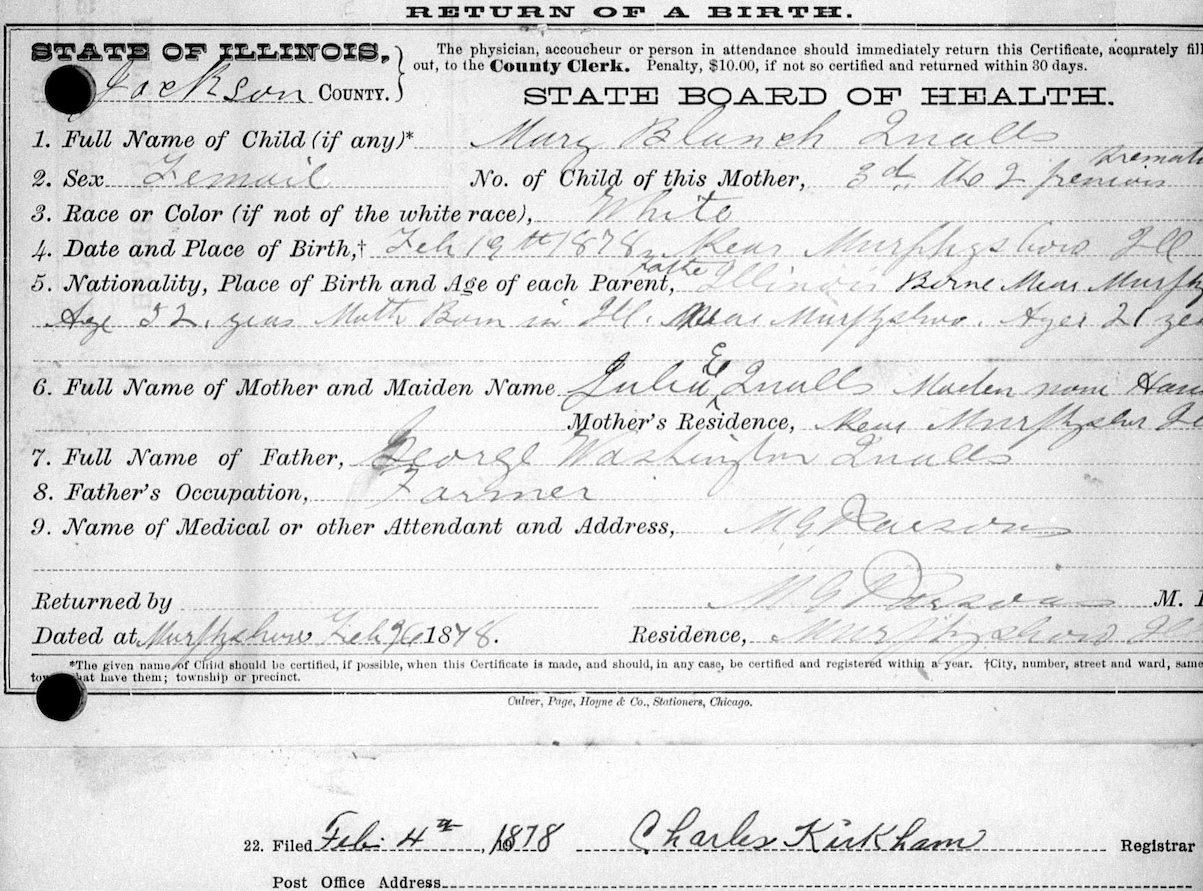 RETURN OF A BIRTH.
STATE OF ILLINOIS, The physician, accoucheur or person in attendance should immediately return this Certificate, accurately fill
Jackson COUNTY. out, to the County Clerk. Penalty, $10.00, if not so certified and returned within 30 days.
STATE BOARD OF HEALTH.
1. Full Name of Child (if any)* Mary Blanch Qualls
2. Sex Femail No. of Child of this Mother, 3d. The 2
3. Race or Color (if not of the white race), White
4. Date and Place of Birth,† Feb 19th 1878 Near Murphysboro Ill
5. Nationality, Place of Birth and Age of each Parent, Father Illinois Borne Near Murphy
Age years Moth Born in Ill. Near Age 21
6. Full Name of Mother and Maiden Name Julia E Qualls Maden nam
Mother's Residence, Near
7. Full Name of Father, George Washington Qualls
8. Father's Occupation, Farmer
9. Name of Medical or other Attendant and Address, M G Parsons
Returned by M G Parsons M.
Dated at Feb 1878. Residence,
*The given name of Child should be certified, if possible, when this Certificate is made, and should, in any case, be certified and registered within a year. †City, number, street and ward, same
that have them; township or precinct.
Culver, Page, Hoyne & Co., Stationers, Chicago.
22. Filed Feb 4th, 1878 Charles Kirkham Registrar
Post Office Address